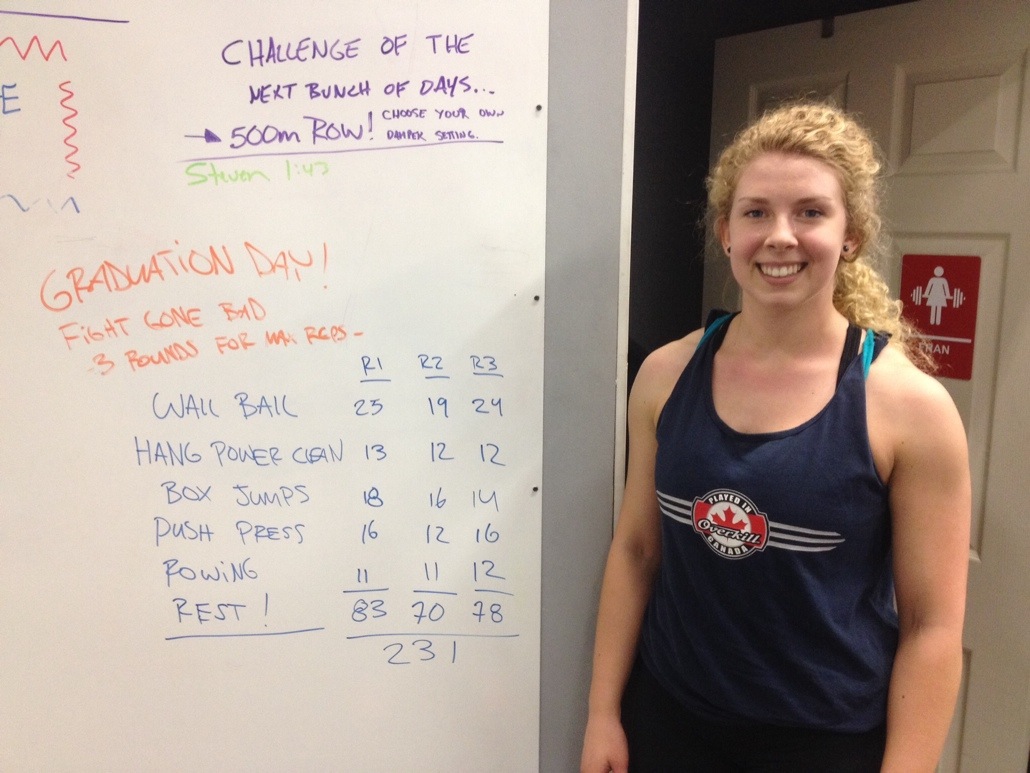 E
CHALLENGE OF THE
NEXT BUNCH OF DAYS...
500m ROW! CHOOSE YOUR OWN
DAMPER SETTING.
Steven 1:43
GRADUATION DAY!
FIGHT GONE BAD
3 ROUNDS FOR MAX REPS -
R1 R2 R3
WALL BALL 25 19 24
HANG POWER CLEAN 13 12 12
BOX JUMPS 18 16 14
PUSH PRESS 16 12 16
ROWING 11 11 12
REST! 83 70 78
231
PLAYED IN
Overkill
CANADA
FRAN